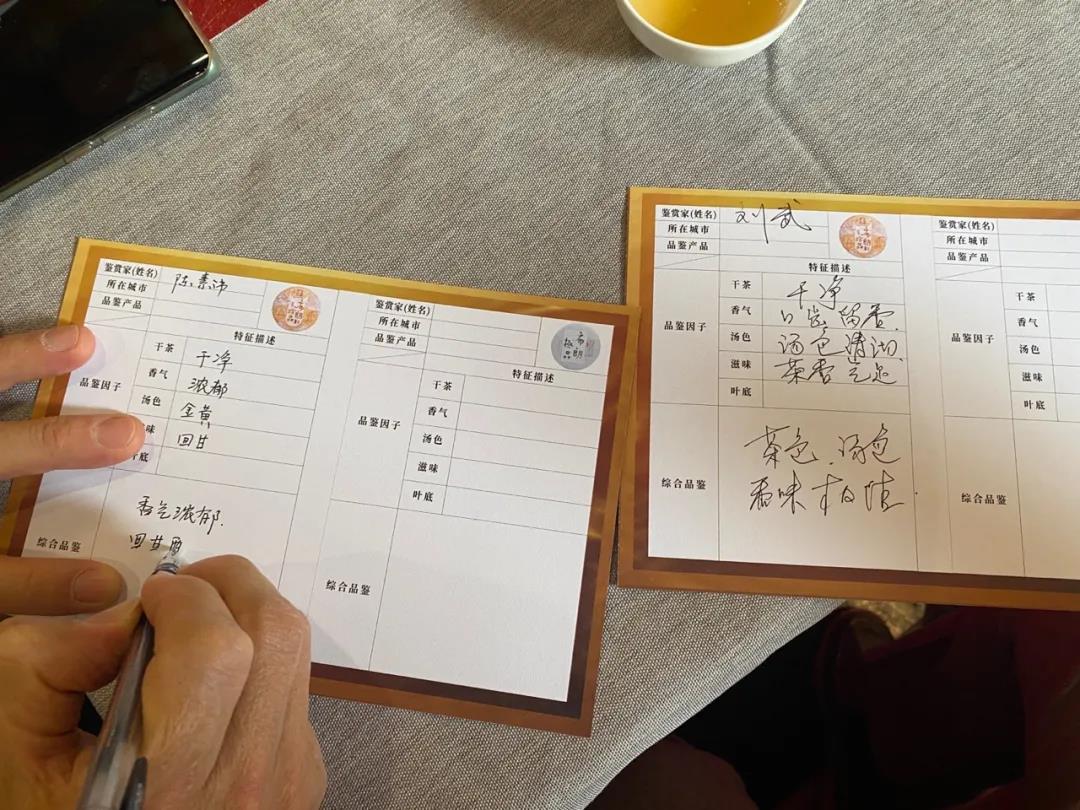 鉴赏家(姓名) 陈素沛
所在城市
品鉴产品
特征描述
品鉴因子
干茶 干净
香气 浓郁
汤色 金黄
味 回甘
叶底
综合品鉴
香气浓郁.
回甘
鉴赏家(姓名)
所在城市
品鉴产品
特征描述
品鉴因子
干茶
香气
汤色
滋味
叶底
综合品鉴
鉴赏家(姓名) 刘武
所在城市
品鉴产品
特征描述
品鉴因子
干茶 干净
香气 口瓮留香.
汤色 汤色清沏.
滋味 茶香气足
叶底
综合品鉴
茶色.汤色
香味
鉴赏家(姓名)
所在城市
品鉴产品
品鉴因子
干茶
香气
汤色
滋味
叶底
综合品鉴